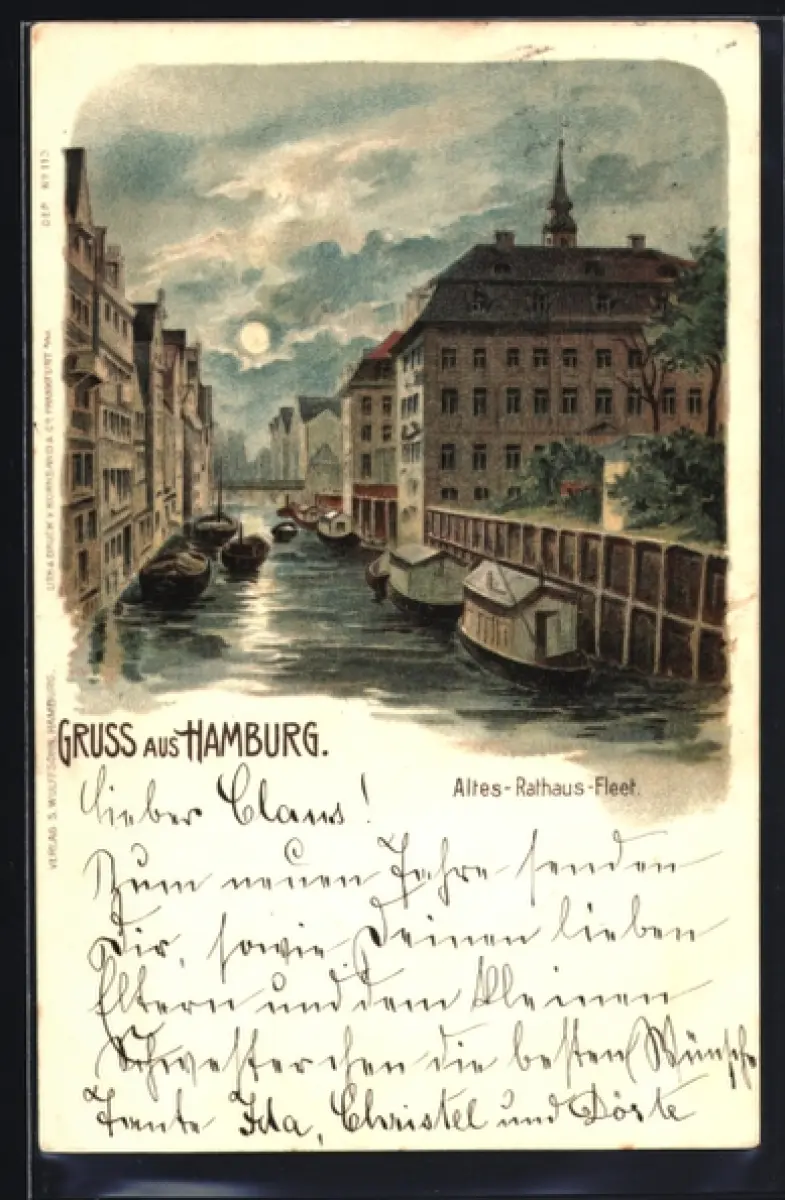 GRUSS AUS HAMBURG.
Altes-Rathaus-Fleet.
Lieber Claus!
Zum neuen Jahre senden
Dir, sowie Deinen lieben
Eltern und dem kleinen
Schwesterchen die besten Wünsche
Tante Ida, Christel und Dörte
DEP. Nº 113
LITH. & DRUCK V. KORNSAND & Cº FRANKFURT a/M.
VERLAG S. WULFFSOHN, HAMBURG.